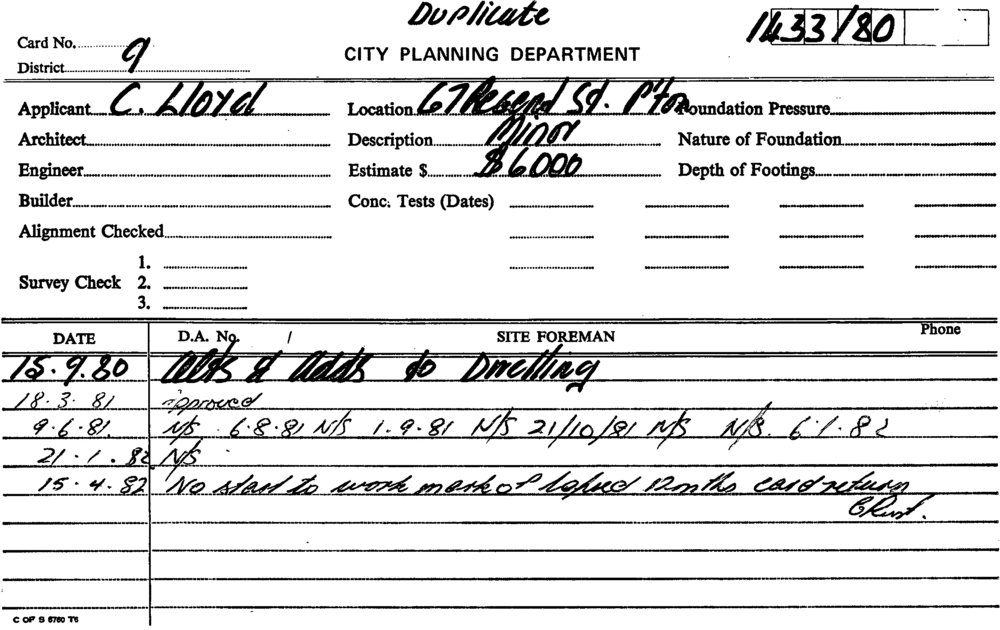 Duplicate
1433/80
Card No. 9
CITY PLANNING DEPARTMENT
District
Applicant C. Lloyd Location 67 Regend St. P'ton Foundation Pressure
Architect Description Minor Nature of Foundation
Engineer Estimate $ $6000 Depth of Footings
Builder Conc. Tests (Dates)
Alignment Checked
1.
Survey Check 2.
3.
DATE D.A. No. / SITE FOREMAN Phone
15.9.80 Alts & Adds to Dwelling
18.3.81 approved
9.6.81. N/S 6.8.81 N/S 1.9.81 N/S 21/10/81 N/S N/S. 6.1.82
21.1.82 N/S.
15.4.82 No start to work mark of lapsed 12 mths card return
C OF S 6760 T6